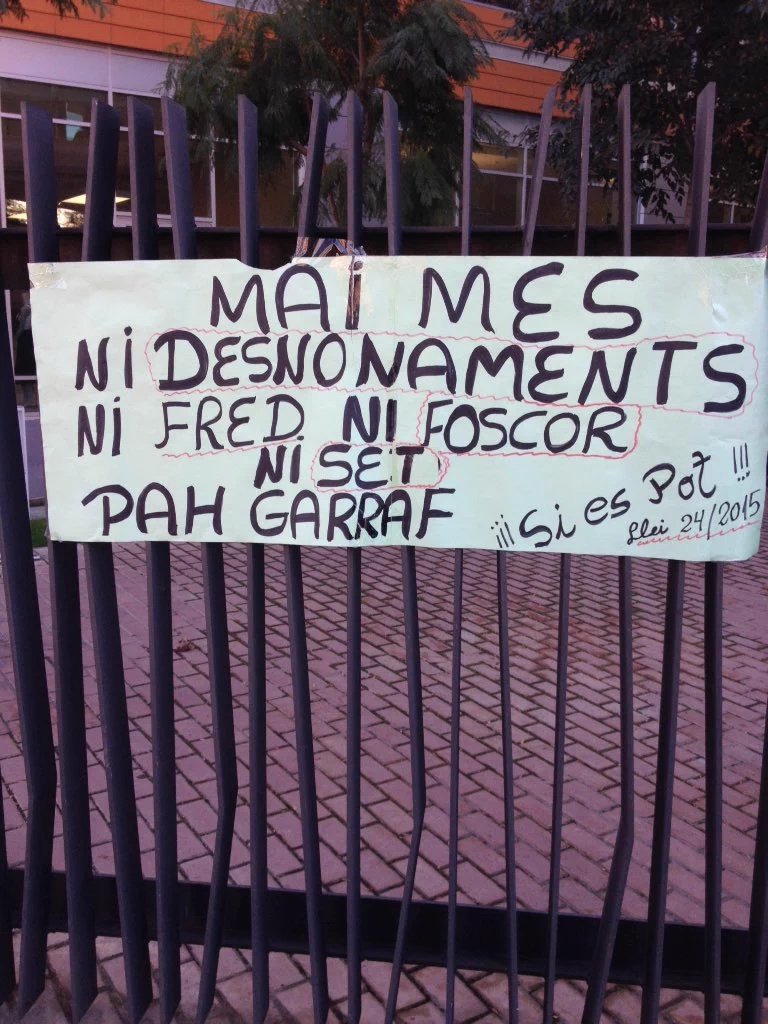 MAi MES
Ni DESNONAMENTS
Ni FRED NI FOSCOR
Ni SET
PAH GARRAF
¡¡¡Si es Pot!!!
Llei 24/2015